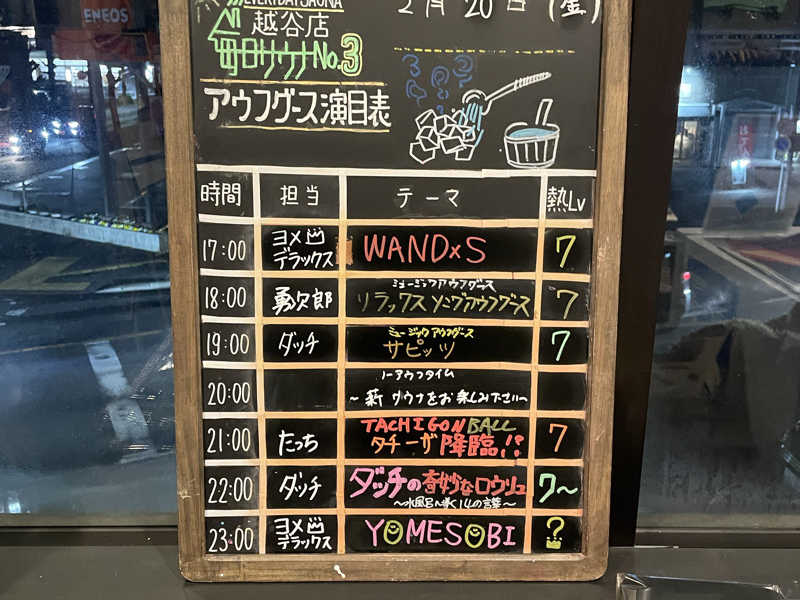 ENEOS
EVERYDAY SAUNA
越谷店
2月20日(金)
毎日サウナNo.3
アウフグース演目表
時間 担当 テーマ 熱Lv
17:00 ヨメ デラックス WANDxS 7
ミュージックアウフグース
18:00 勇次郎 リラックスソングアウフグース 7
ミュージックアウフグース
19:00 ダッチ サピッツ 7
ノーアウフタイム
20:00 ~薪サウナをお楽しみ下さい~
TACHIGON BALL
21:00 たっち タチーザ降臨!? 7
22:00 ダッチ ダッチの奇妙なロウリュ 7~
23:00 ヨメ デラックス YOMESOBI ?